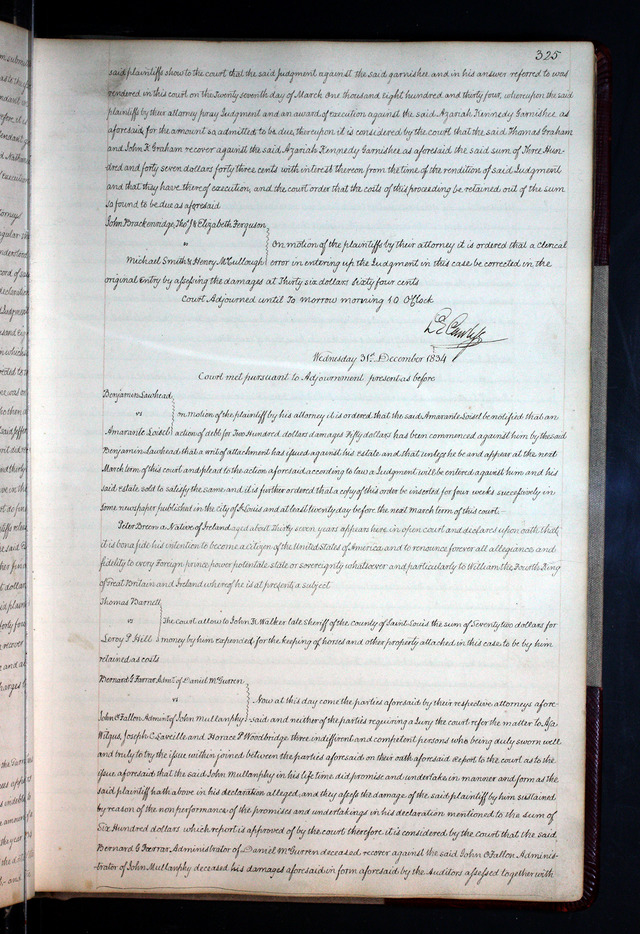 325
said plaintiffs show to the court that the said Judgment against the said garnishee and in his answer referred to was
rendered in this court on the Twenty seventh day of March One thousand eight hundred and thirty four, whereupon the said
plaintiffs by their attorney pray Judgment and an award of execution against the said Azariah Kennedy Garnishee as
aforesaid, for the amount so admitted to be due, thereupon it is considered by the court that the said Thomas Graham
and John R Graham recover against the said Azariah Kennedy Garnishee as aforesaid the said sum of Three Hun-
dred and forty seven dollars forty three cents with interest thereon from the time of the rendition of said Judgment
and that they have thereof execution, and the court order that the costs of this proceeding be retained out of the sum
so found to be due as aforesaid
John Brackenridge Thos J & Elizabeth Ferguson
vs
On motion of the plaintiffs by their attorney it is ordered that a clerical
Michael Smith & Henry McCullough error in entering up the Judgment in this case be corrected in the
original Entry by assessing the damages at Thirty six dollars sixty four cents
Court Adjourned until To morrow morning 10 O'Clock
Wednesday 31st December 1834
Court met pursuant to Adjournment present as before
Benjamin Lawhead
vs on motion of the plaintiff by his attorney it is ordered that the said Amarante Loisel be notified that an
Amarante Loisel action of debt for Two Hundred dollars damages Fifty dollars has been commenced against him by the said
Benjamin Lawhead that a writ of attachment has issued against his estate and that unless he be and appear at the next
March term of this court and plead to the action aforesaid according to law a Judgment will be entered against him and his
said estate sold to satisfy the same and it is further ordered that a copy of this order be inserted for four weeks successively in
some newspaper published in the city of St Louis and at least twenty day before the next march term of this court
Peter Breen a Native of Ireland aged about Thirty seven years appears here in open court and declares upon oath that
it is bona fide his intention to become a citizen of the United States of America and to renounce forever all allegiance and
fidelity to every Foreign prince power potentate state or sovereignty whatsoever and particularly to William the Fourth King
of Great Britain and Ireland whereof he is at present a subject
Thomas Barnett
vs The court allow to John K Walker late sheriff of the county of Saint Louis the sum of Seventy two dollars for
Leroy P Hill money by him expended for the keeping of horses and other property attached in this case to be by him
retained as costs
Bernard G Farrar Admr of Daniel McGurren
vs Now at this day come the parties aforesaid by their respective attorneys afore-
John O'Fallon Admint of John Mullanphy said and neither of the parties requiring a Jury the court refer the matter to Asa
Wilgus, Joseph C Laveille and Horace P Woodbridge three indifferent and competent persons who being duly sworn well
and truly to try the issue within joined between the parties aforesaid on their oath aforesaid Report to the court as to the
issue aforesaid that the said John Mullanphy in his life time did promise and undertake in manner and form as the
said plaintiff hath above in his declaration alleged, and they assess the damage of the said plaintiff by him sustained
by reason of the nonperformance of the promises and undertakings in his declaration mentioned to the sum of
Six Hundred dollars which report is approved of by the court therefore it is considered by the court that the said
Bernard G Farrar Administrator of Daniel McGurren deceased recover against the said John O'Fallon Adminis-
trator of John Mullanphy deceased his damages aforesaid in form aforesaid by the Auditors assessed together with